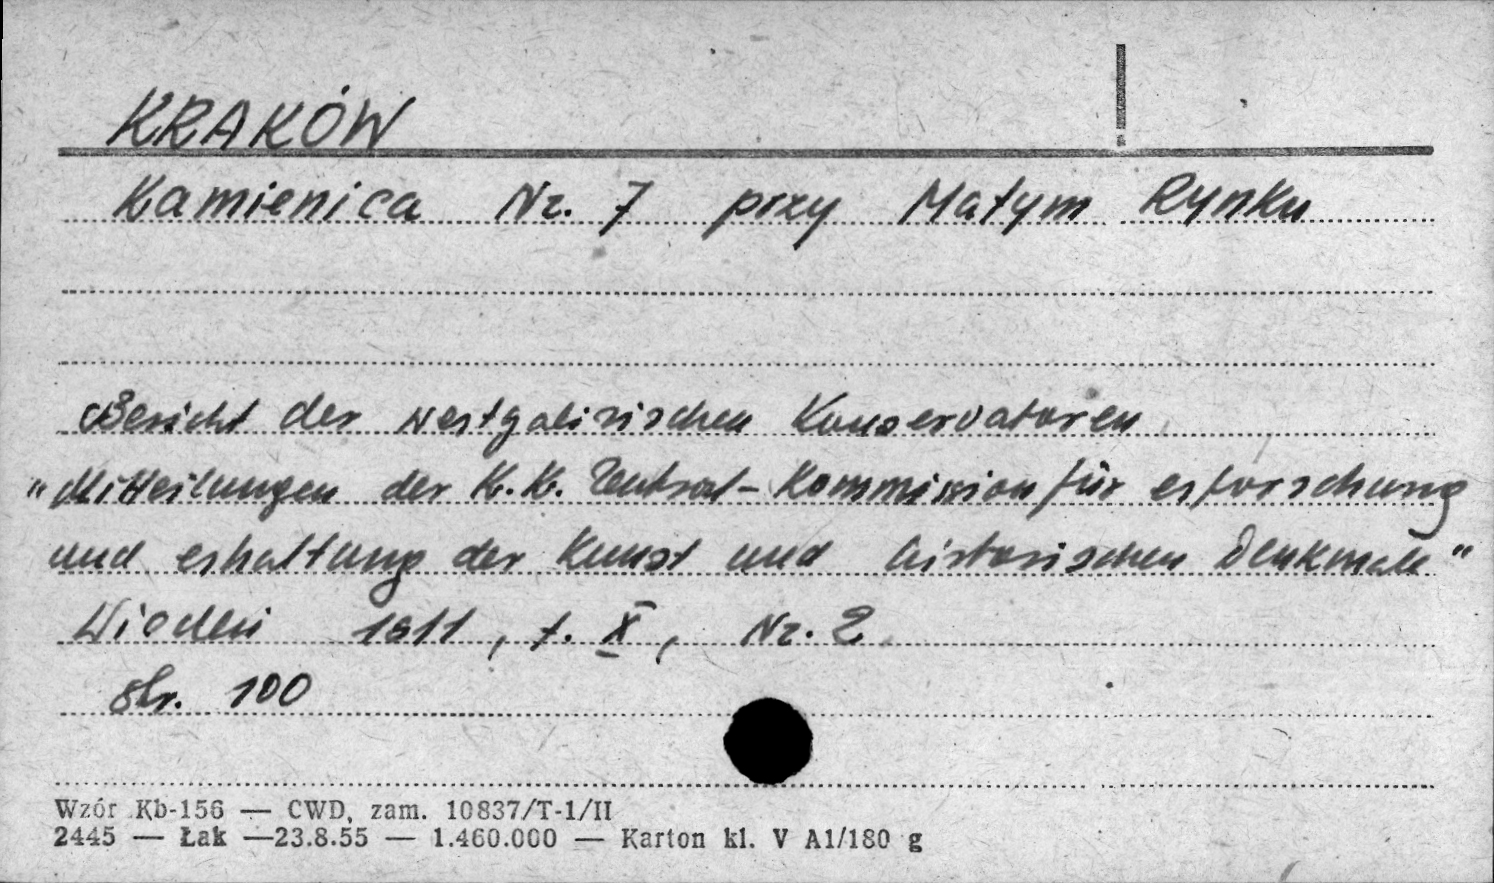 KRAKÓW
Kamienica Nr. 7 przy Małym Rynku
Bericht der westgalizischen Konservatoren
"Mitteilungen der K.K. Zentral-Kommission für erforschung
und erhaltung der Kunst und historischen Denkmale"
Wiedeń 1911, t. X, Nr. 2
str. 100
Wzór Kb-156 — CWD, zam. 10837/T-1/II
2445 — Łak —23.8.55 — 1.460.000 — Karton kl. V A1/180 g